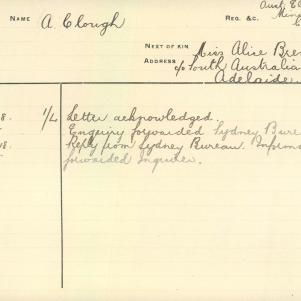 NAME A Clough
REG. &C.
NEXT OF KIN Miss Alice
ADDRESS c/o South Australia
Adelaide
8. 1/L Letter acknowledged.
Enquiry forwarded Sydney Bureau
18. Reply from Sydney Bureau.
forwarded inquirer.